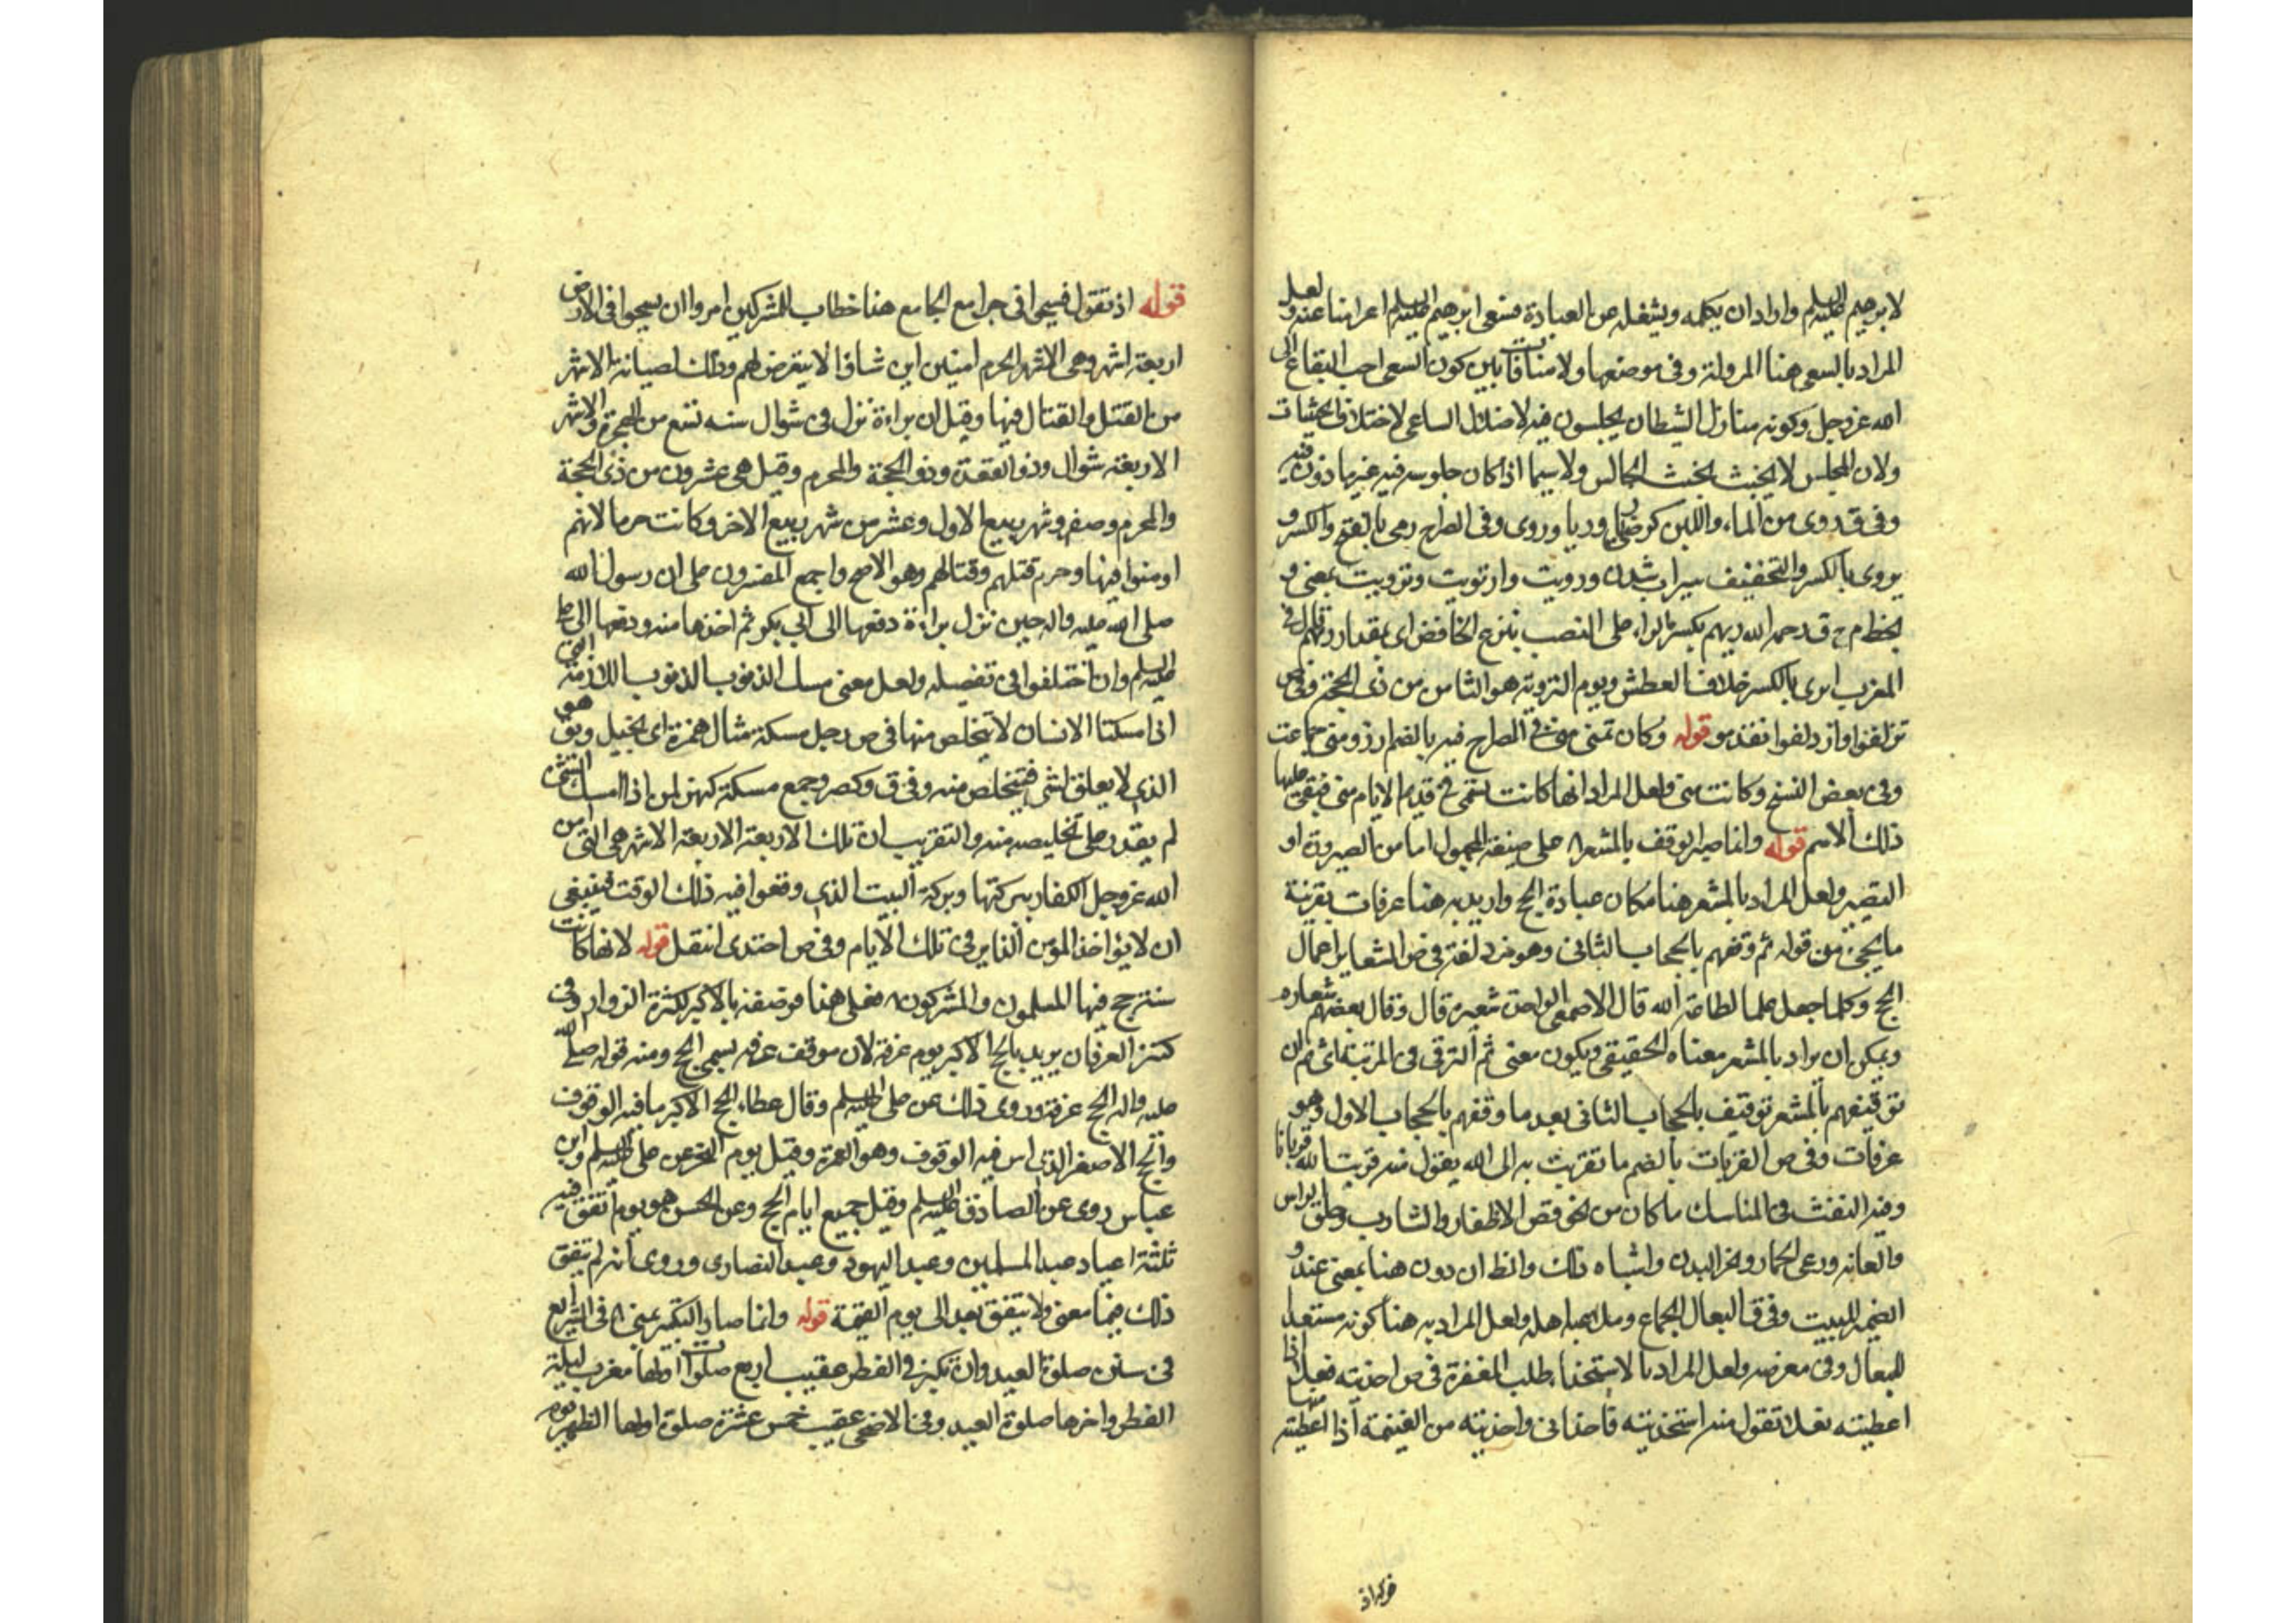 لابرهيم عليه السلم واراد ان يكلمه ويشغله عن العبادة فسعى ابرهيم عليه السلم اعراضا عنه ولعل
المراد بالسعى هنا الهرولة وفى موضعها ولا منافاة بين كون السعى احب البقاع الى
الله عز وجل وكونه منازل الشيطان يجلسون فيه لاضلال الساعى لاختلاف الحيثيات
ولان المجلس لا يخبث بخبث الجالس ولا سيما اذا كان جلوسه فيه غير ماذون فيه
وفى ق روى من الماء واللبن كرضى ريا وريا وروى وفى الصراح رى بالفتح والكسر و
يروى بالكسر والتخفيف سيراب شدن ورويت وارتويت وترويت بمعنى و
بخط م ح ق رحمه الله ريهم بكسر الراء على النصب بنزع الخافض اى بمقدار ريهم قال فى
المغرب الرى بالكسر خلاف العطش ويوم التروية هو الثامن من ذى الحجة وفى ص
تزلفوا وازدلفوا تقدموا قوله وكان تمنى منى فى الصراح منية بالضم ارزو منى جماعت
وفى بعض النسخ وكانت منى ولعل المراد انها كانت تسمى فى قديم الايام منى فبقى عليها
ذلك الاسم قوله وانما صير الوقف بالمشعر ا ه على صيغة المجهول اما من الصيرورة او
التصيير ولعل المراد بالمشعر هنا مكان عبادة الحج واريد به هنا عرفات بقرينة
ما يجئ من قوله ثم وقفهم بالحجاب الثانى وهو مزدلفة فى ص المشعاير اعمال
الحج وكلما جعل علما لطاعة الله قال الاصمعى الواحدة شعيرة قال وقال بعضهم شعاره
ويمكن ان يراد بالمشعر معناه الحقيقى ويكون معنى ثم الترقى فى المرتبة اى ثم ان
توقيفهم بالمشعر توقيف بالحجاب الثانى بعد ما وقفهم بالحجاب الاول وهو
عرفات وفى ص القربات بالضم ما تقربت به الى الله يقول منه قربت لله قربانا
وفيه التفث فى المناسك ما كان من نحو قص الاظفار والشارب وحلق الراس
والعانة ورمى الجمار ونحر البدن واشباه ذلك والظ ان دون هنا بمعنى عند و
الضمير للبيت وفى ق البعال الجماع وملاعبة اهله ولعل المراد به هنا كونه مستعدا
للبعال وفى معرضه ولعل المراد بالاستحذاء طلب المغفرة فى ص احذيته نعلا اذا
اعطيته نعلا تقول منه استحذيته فاحذانى واحذيته من الغنيمة اذا اعطيته منها
قوله اذ تقول فسيحوا فى جوامع الجامع هنا خطاب للمشركين امروا ان يسيحوا فى الارض
اربعة اشهر وهى الاشهر الحرم امنين اين شاؤا لا يتعرض لهم وذلك لصيانة الاشهر
من القتل والقتال فيها وقيل ان براءة نزل فى شوال سنه تسع من الهجرة والاشهر
الاربعة شوال وذو القعدة وذو الحجة والمحرم وقيل هى عشرون من ذى الحجة
والمحرم وصفر وشهر ربيع الاول وعشر من شهر ربيع الاخر وكانت حرما لانهم
اومنوا فيها وحرم قتلهم وقتالهم وهو الاصح واجمع المفسرون على ان رسول الله
صلى الله عليه واله حين نزل براءة دفعها الى ابى بكر ثم اخذها منه ودفعها الى على
عليه السلم وان اختلفوا فى تفصيله ولعل معنى مسك الذنوب الذنوب اللازمة التى
اذا مسكتا الانسان لا يتخلص منها فى ص رجل مسكة مثال همزة اى بخيل ويق هو
الذى لا يعلق بشئ فيتخلص منه وفى ق وكصرد جمع مسكة كهمزة لمن اذا امسك الشئ
لم يقدر على تخليصه منه والتقريب ان تلك الاربعة الاربعة الاشهر هى التى امن
الله عز وجل الكفار ببركتها وبركة البيت الذى وقعوا فيه ذلك الوقت فينبغى
ان لا يؤاخذ المؤمن الناير فى تلك الايام وفى ص احتدى انتقل قوله لانها كانت
سنة حج فيها المسلمون والمشركون ا ه فعلى هنا فوصفه بالاكبر لكثرة الزوار وفى
كنز العرفان يريد بالحج الاكبر يوم عرفة لان موقف عرفه يسمى الحج ومنه قوله صلى الله
عليه واله الحج عرفة وروى ذلك عن على عليه السلم وقال عطاء الحج الاكبر ما فيه الوقوف
والحج الاصغر الذى ليس فيه الوقوف وهو العمرة وقيل يوم النحر عن على عليه السلم وابن
عباس روى عن الصادق عليه السلم وقيل جميع ايام الحج وعن الحسن هو يوم اتفق فيه
ثلثة اعياد عيد المسلمين وعيد اليهود وعيد النصارى وروى انه لم يتفق
ذلك فيما معنى ولا يتفق بعد الى يوم القيمة قوله وانما صار التكبير بمنى ا ه فى الشرايع
فى سنن صلوة العيد وان يكبر فى الفطر عقيب اربع صلوات اولها مغرب ليلة
الفطر واخرها صلوة العيد وفى الاضحى عقيب خمس عشرة صلوة اولها الظهر يوم